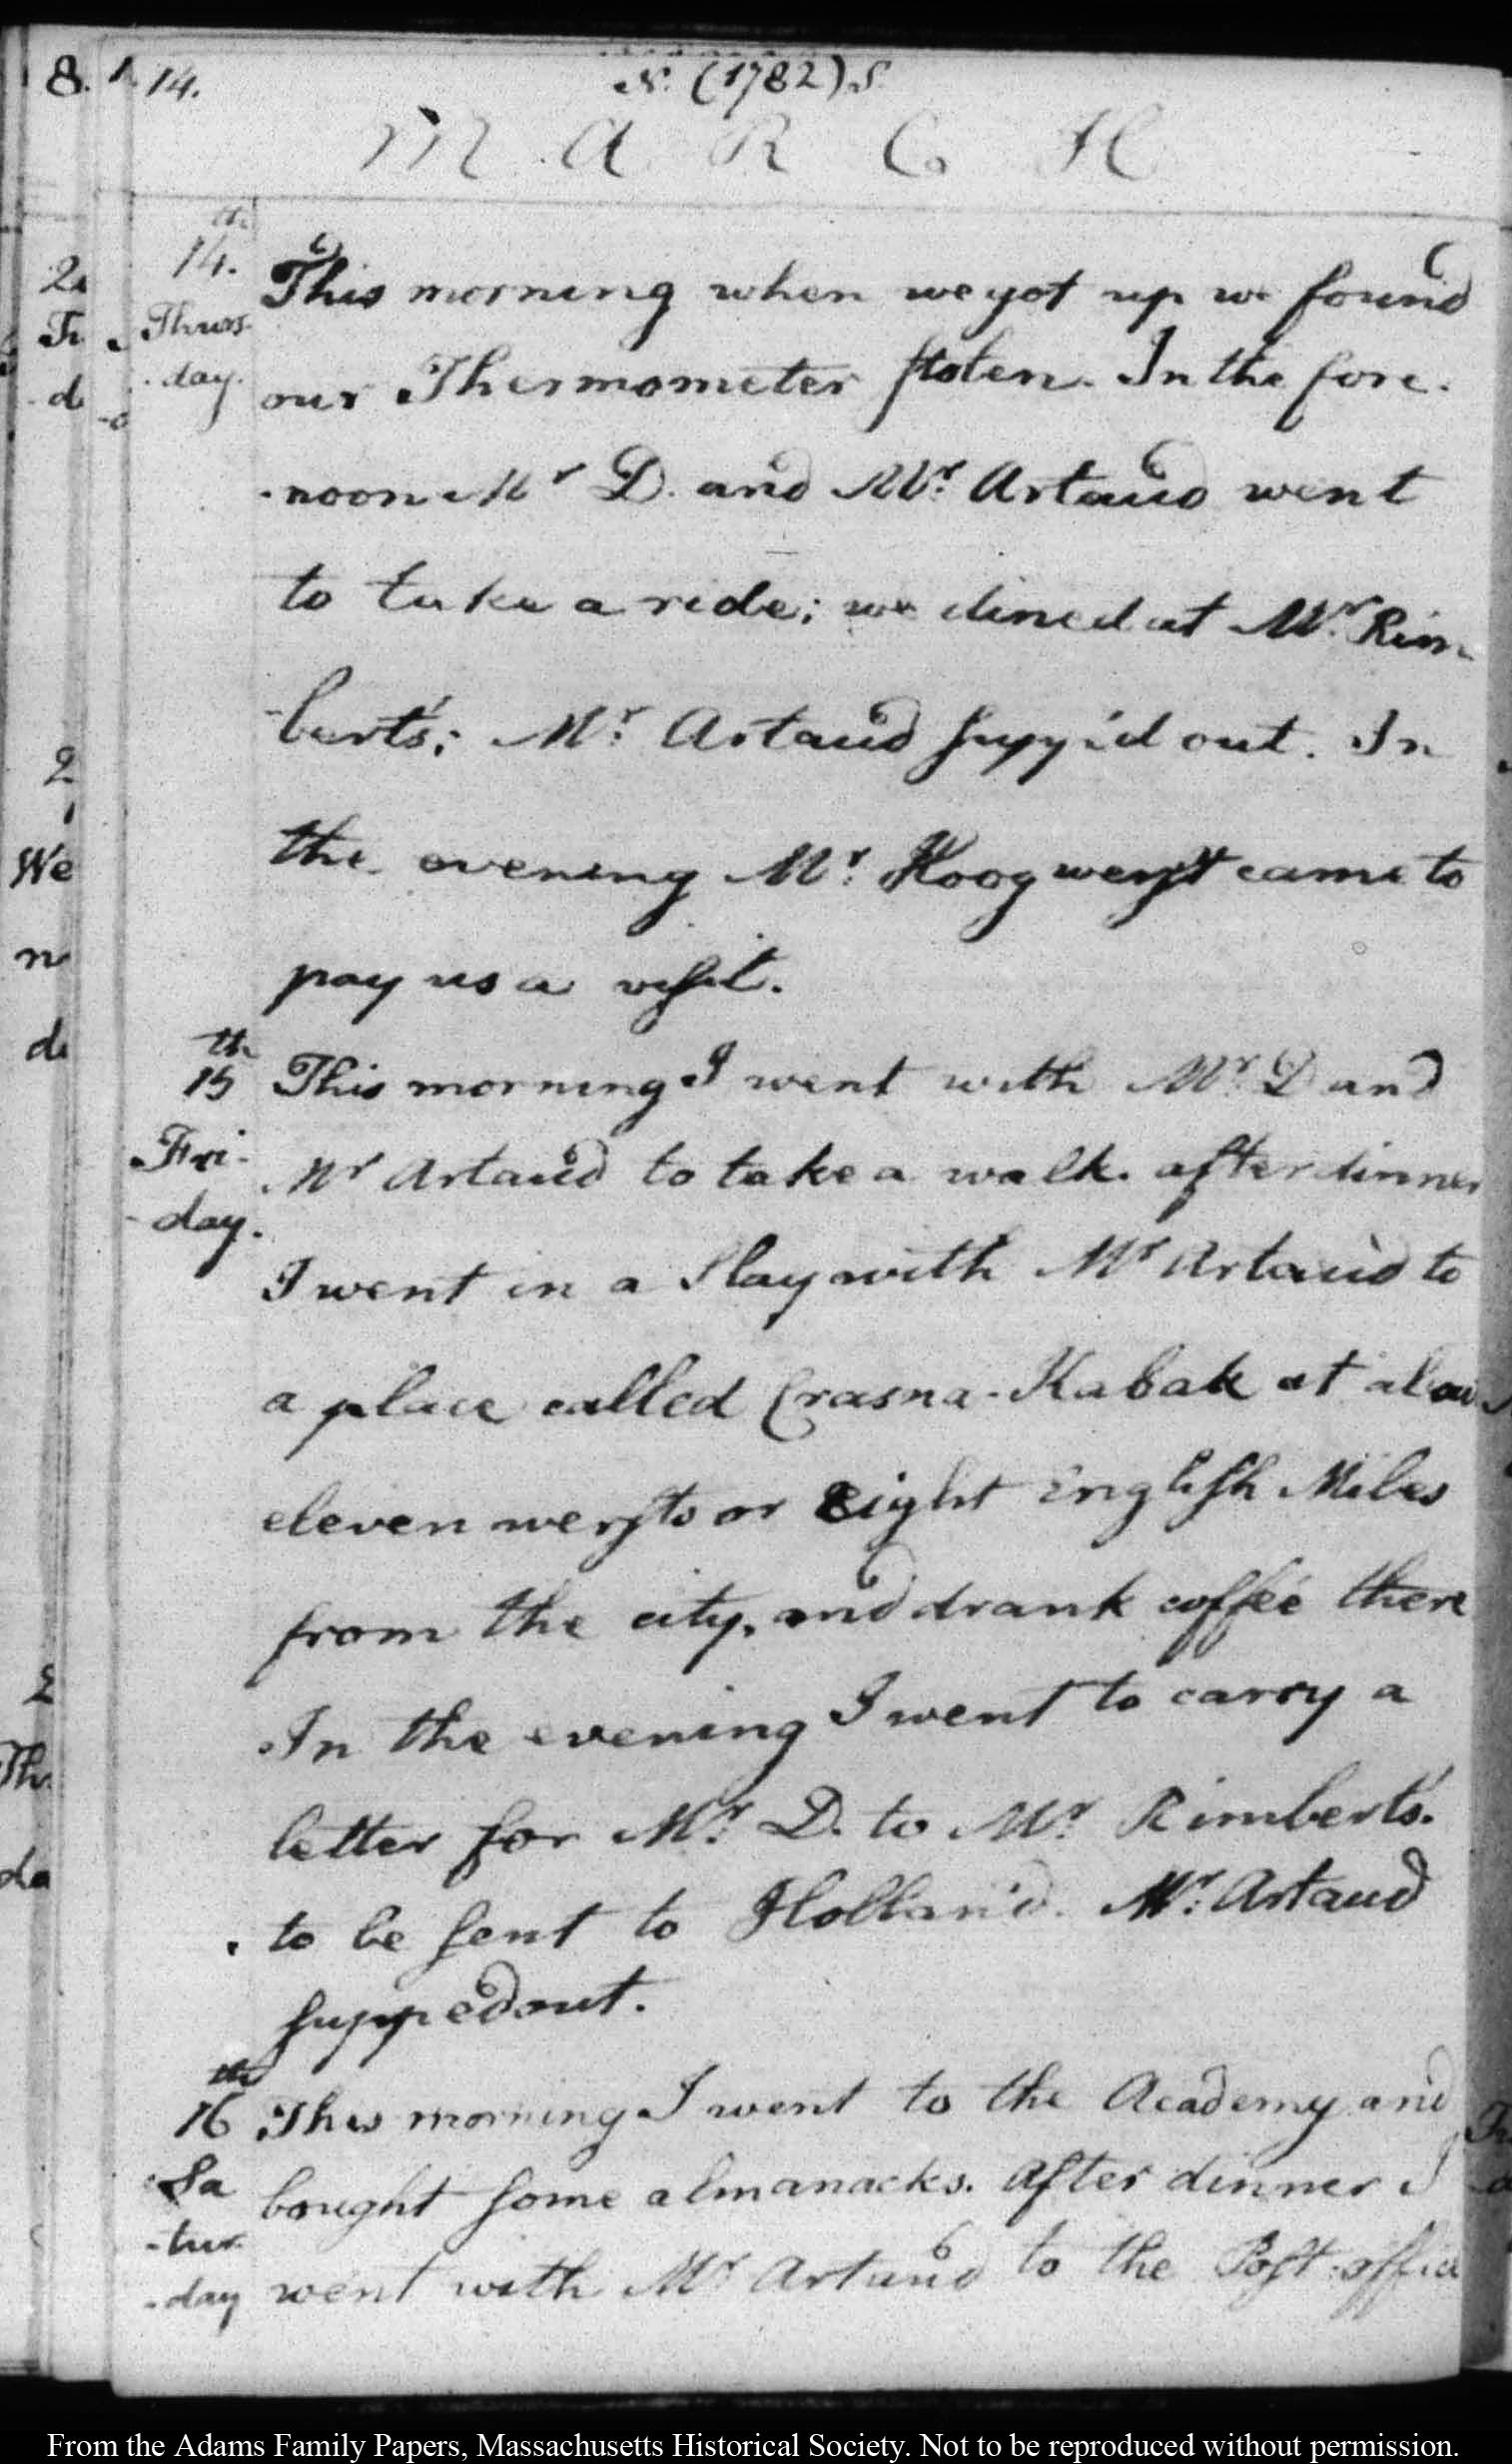 8. 14.
N. (1782) S.
M A R C H
th
14.
Thurs-
day.
This morning when we got up we found
our Thermometer stolen. In the fore-
-noon Mr D. and Mr. Artaud went
to take a ride; we dined at Mr. Rim-
-bert's; Mr. Artaud supp'd out. In
the evening Mr. Hoogwerft came to
pay us a visit.
th
15
Fri-
-day.
This morning I went with Mr. D and
Mr Artaud to take a walk. after dinner
I went in a Slay with Mr Artaud to
a place called Crasna-Kabak at
eleven wersts or Eight English Miles
from the city, and drank coffee there
In the evening I went to carry a
letter for Mr. D. to Mr. Rimberts.
to be sent to Holland. Mr. Artaud
supped out.
th
16
Sa
-tur
-day
This morning I went to the Academy and
bought some almanacks. After dinner I
went with Mr Artaud to the Post-office
2
We
From the Adams Family Papers, Massachusetts Historical Society. Not to be reproduced without permission.